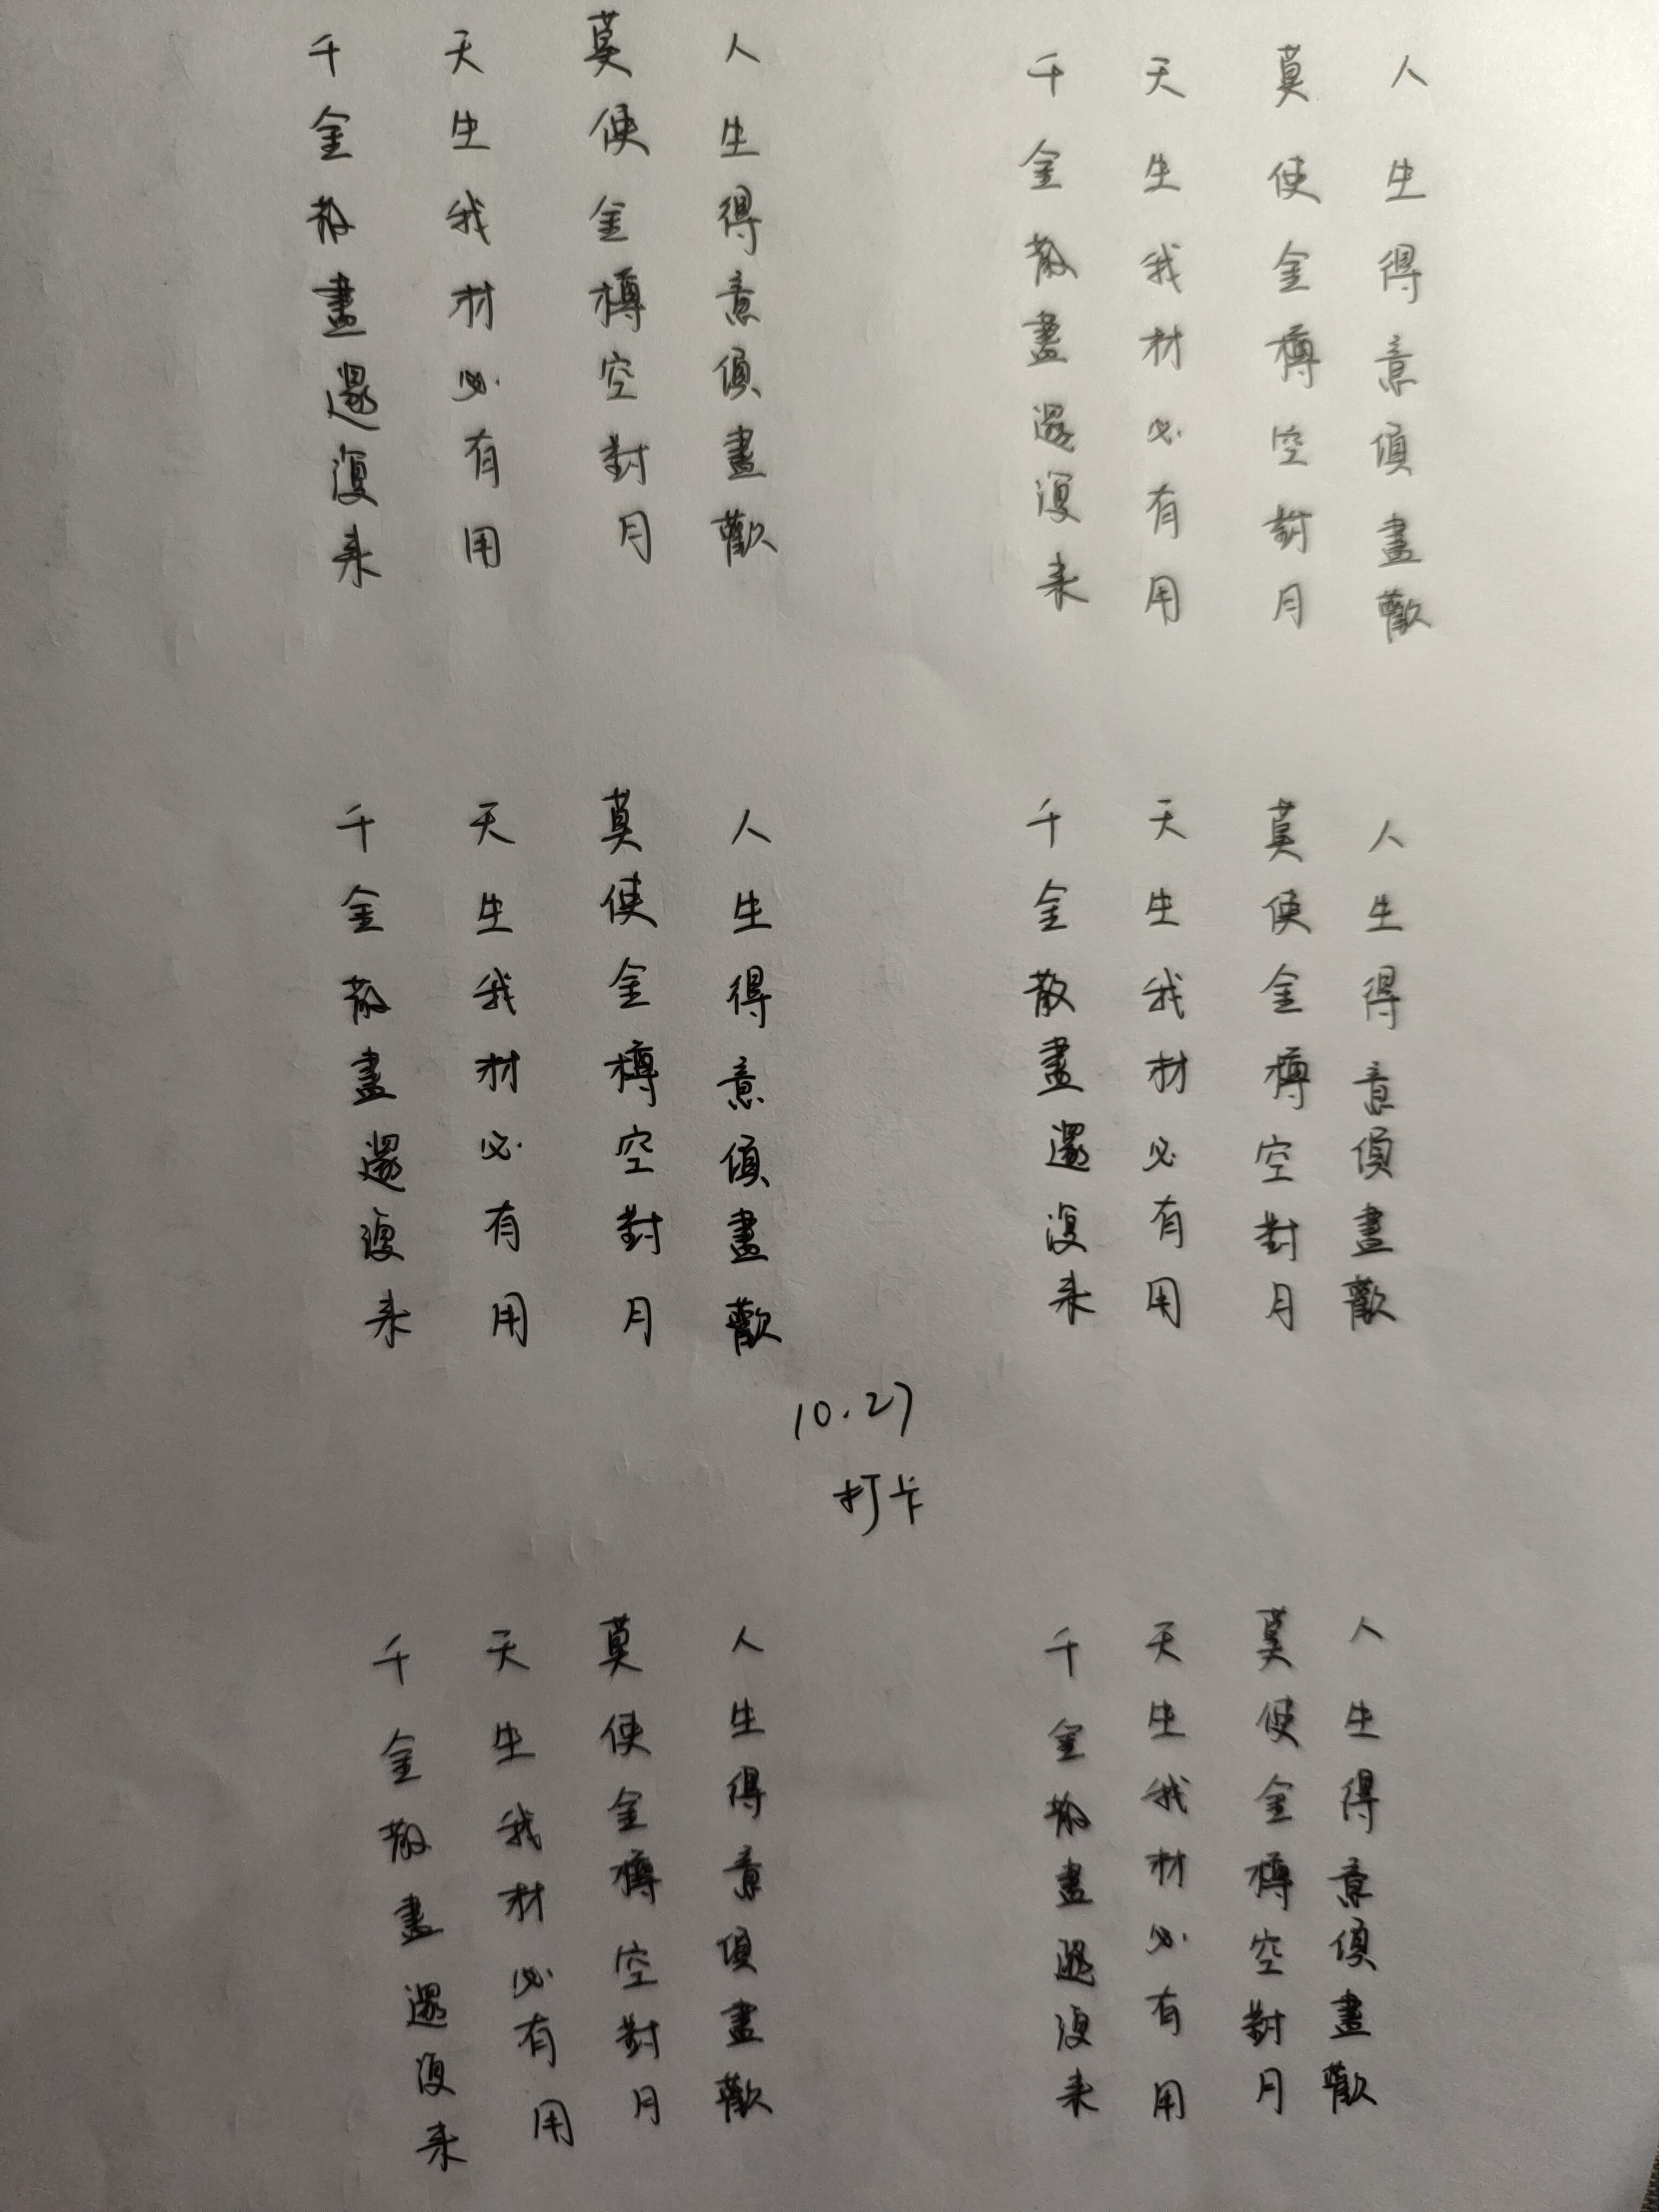 人生得意須盡歡
莫使金樽空對月
天生我材必有用
千金散盡還復来
人生得意須盡歡
莫使金樽空對月
天生我材必有用
千金散盡還復来
人生得意須盡歡
莫使金樽空對月
天生我材必有用
千金散盡還復来
人生得意須盡歡
莫使金樽空對月
天生我材必有用
千金散盡還復来
10.27
打卡
人生得意須盡歡
莫使金樽空對月
天生我材必有用
千金散盡還復来
人生得意須盡歡
莫使金樽空對月
天生我材必有用
千金散盡還復来